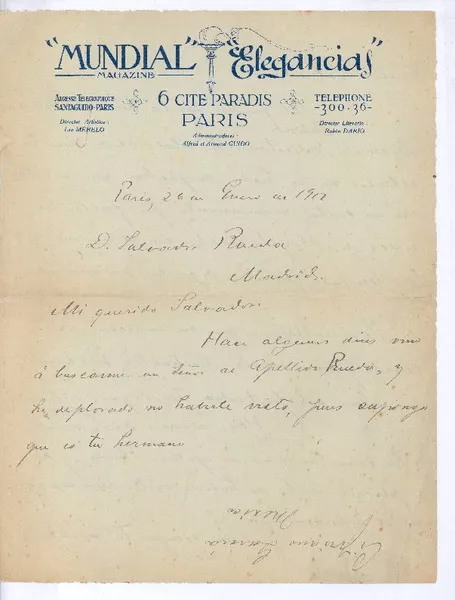 "MUNDIAL" "Elegancias"
MAGAZINE
ADRESSE TELEGRAPHIQUE
SANTAGUIDO-PARIS
6 CITÉ PARADIS
TELEPHONE
-300-36-
PARIS
Director Artistico:
Leo MERELO
Administradores
Alfred et Armand GUIDO
Director Literario:
Rubén DARÍO
Paris, 26 de Enero de 1912
D. Salvador Rueda
Madrid.
Mi querido Salvador:
Hace algunos dias vino
á buscarme un señor de Apellido Rueda, y
he deplorado no haberle visto, pues supongo
que es tu hermano